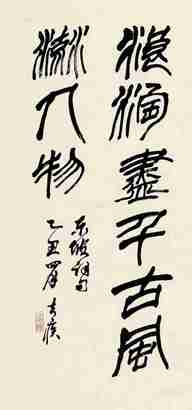 浪淘盡千古風
流人物
東坡詞句
乙丑